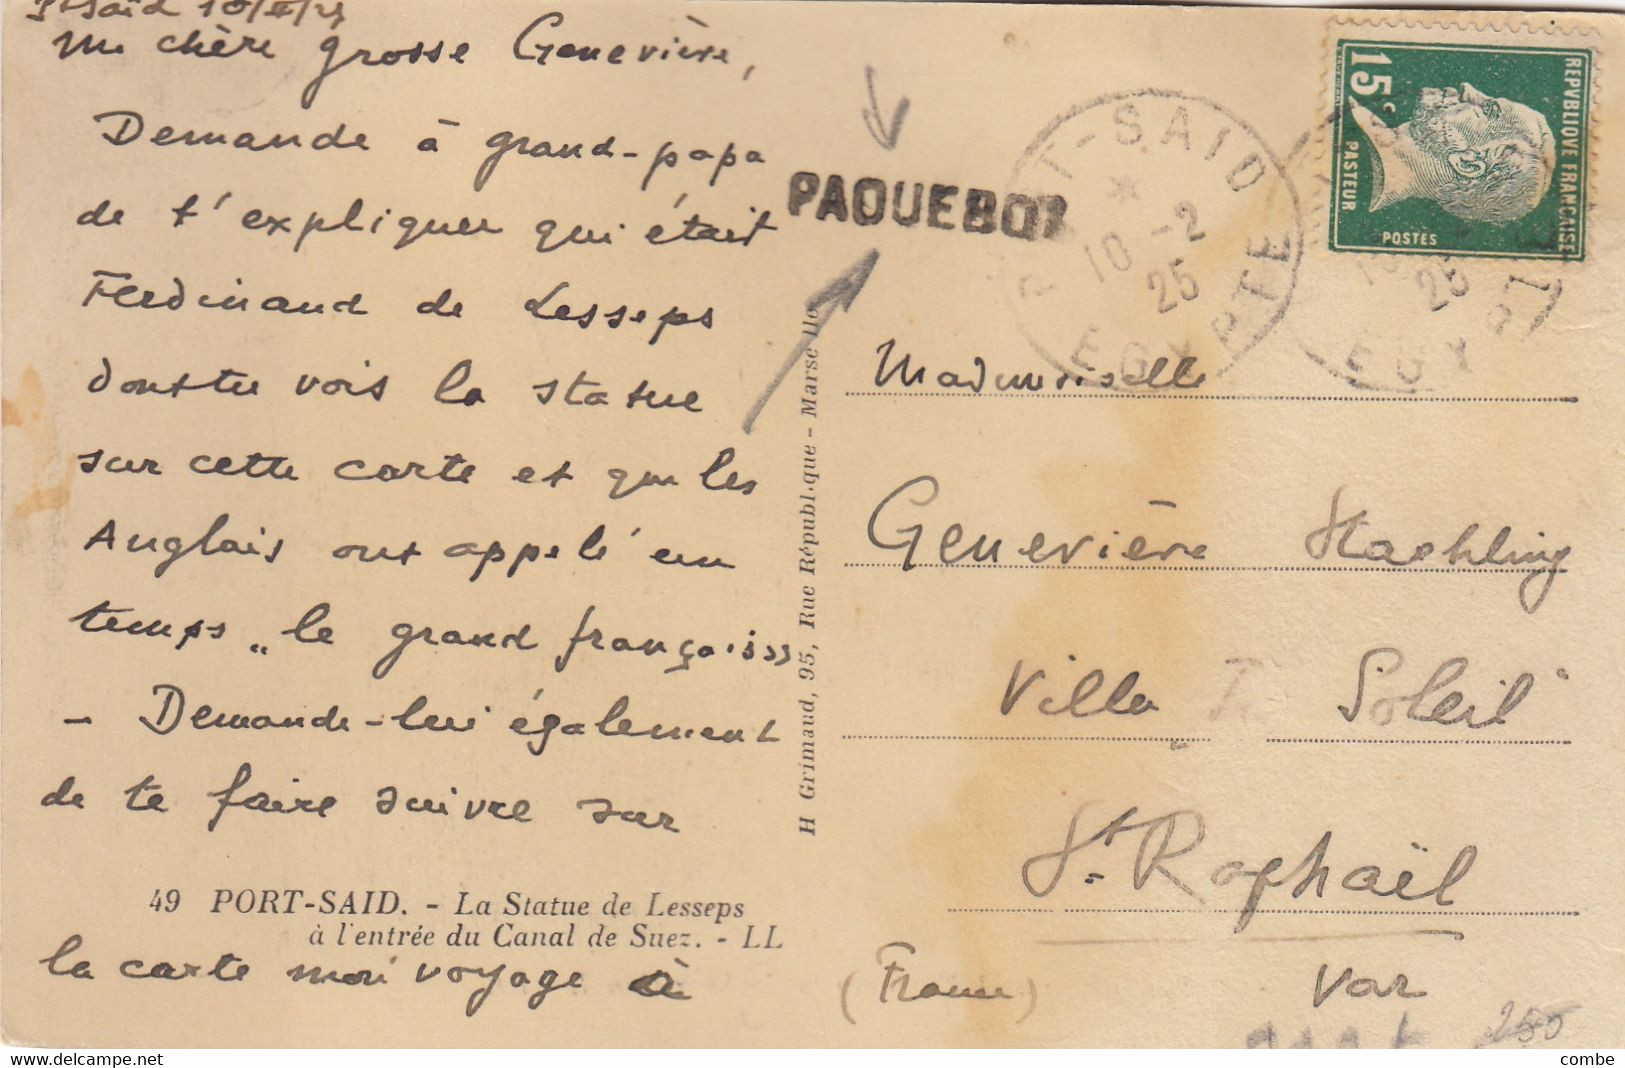 Pt Saïd 10/II/25
Ma chère grosse Geneviève,
Demande à grand-papa
de t'expliquer qui était
Ferdinand de Lesseps
dont tu vois la statue
sur cette carte et que les
Anglais ont appelé en un
temps „ le grand français »
- Demande-lui également
de te faire suivre sur
la carte mon voyage à
49 PORT-SAID. - La Statue de Lesseps
à l'entrée du Canal de Suez. - LL
H Grimaud, 95, Rue République - Marseille
PAQUEBOT
PORT-SAID
*
10 -2
25
EGYPTE
25
EGY
REPVBLIQVE FRANÇAISE
15c
PASTEUR
POSTES
Mademoiselle
Geneviève Staehling
Villa Soleil
St. Raphaël
(France) Var
250
combe